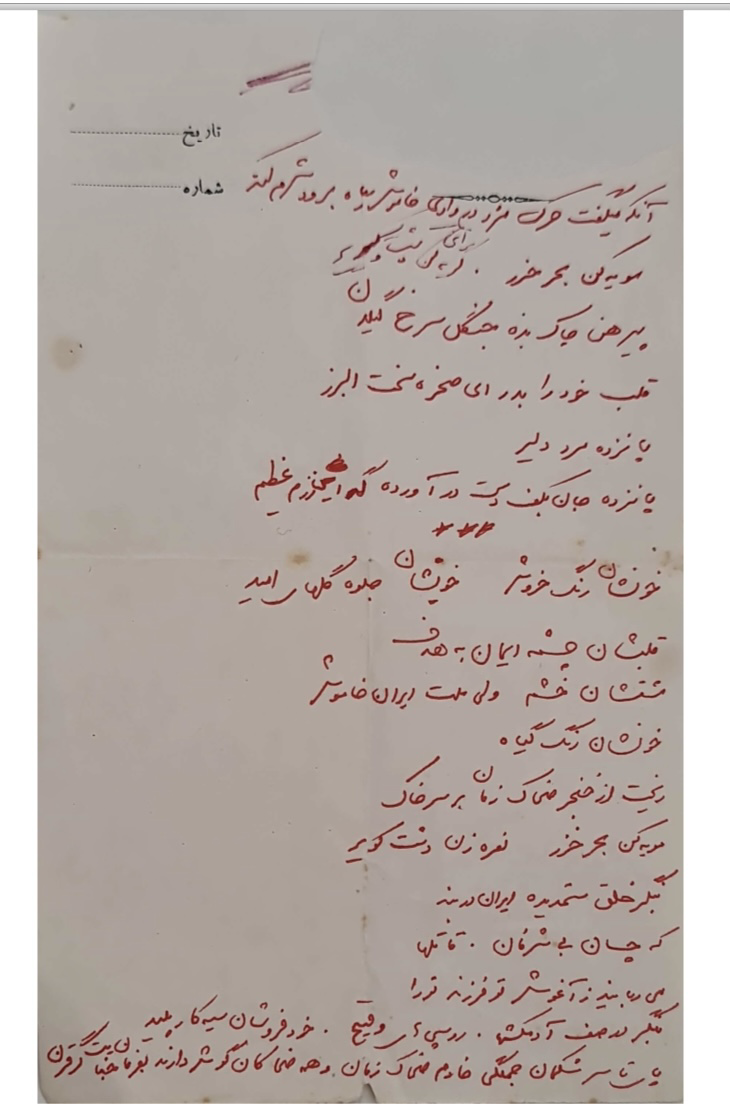 تاریخ
شماره
آنکه میگفت حرکت مرد در وادی خاموش سیاه برود شرم کند
مویه کن بحر خزر . گریه کن دشت کویر
پیرهن چاک بده جنگل سرخ گیلان
قلب خود را بدر ای صخره سخت البرز
پانزده مرد دلیر
پانزده جان بکف دست در آورده که این رزم عظیم
***
خونشان رنگ خروش خویشان جلوه گلهای امید
قلبشان چشمه ایمان به هدف
مشتشان خشم ولی ملت ایران خاموش
خونشان رنگ گیاه
ریخت از خنجر ضحاک زمان بر سر خاک
مویه کن بحر خزر نعره زن دشت کویر
بنگر خلق ستمدیده ایران در بند
که چسان بی شرفان . قاتلها
می ربایند ز آغوش تو فرزند تو را
بنگر در صف آدمکشها . روسپی ای وقیح . خود فروشان سیه کار پلید
پای تا سر شکمان جملگی خادم ضحاک زمان و همه ضحاکان گوش دارند بفرما